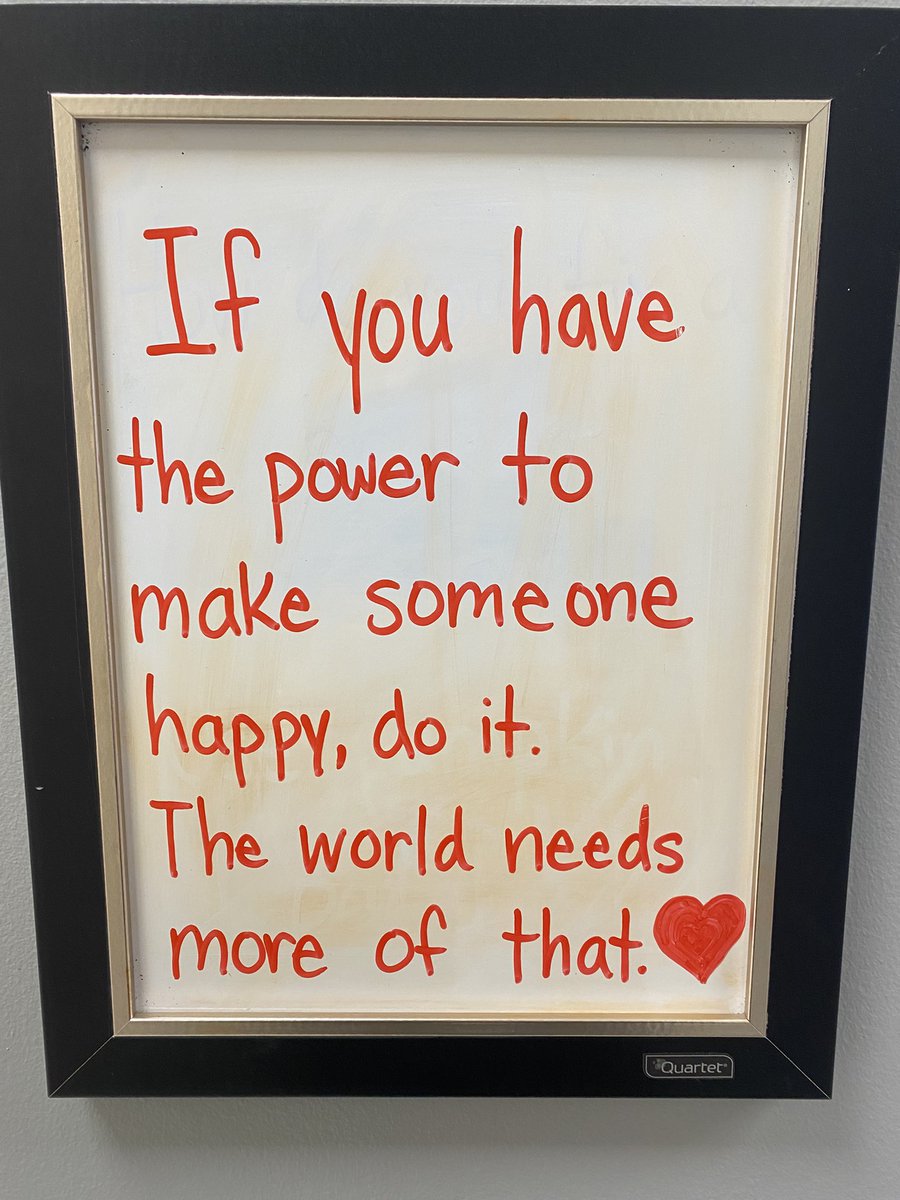 If you have
the power to
make someone
happy, do it.
The world needs
more of that.
Quartet